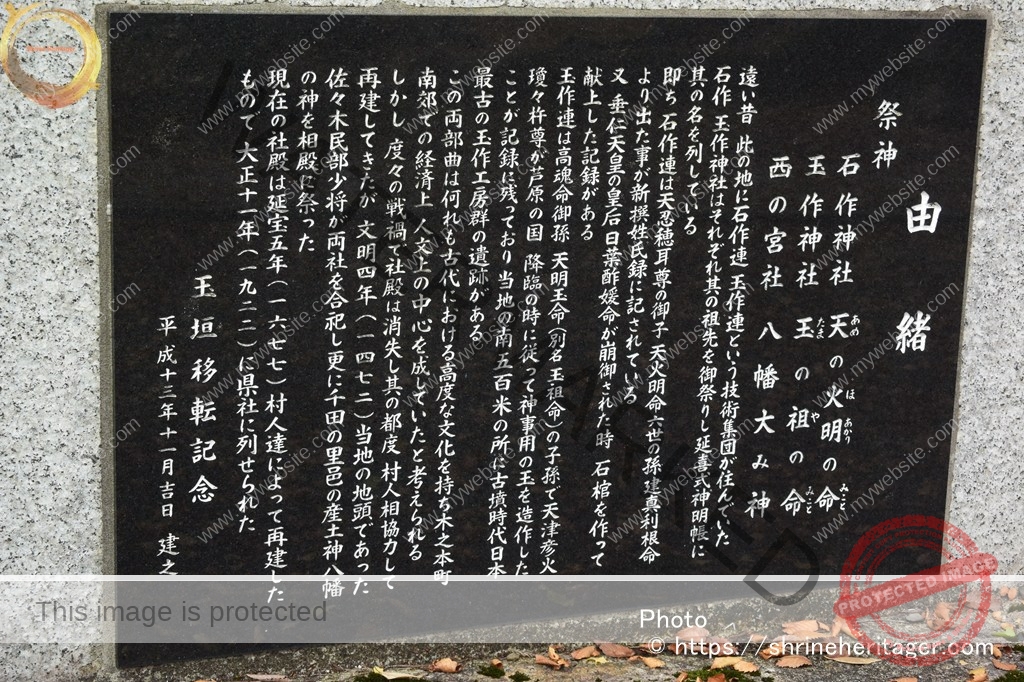 由緒
祭神
石作神社 天の火明の命
あめ ほ あかり みこと
玉作神社 玉の祖の命
たま や みこと
西の宮社 八幡大み神
遠い昔 此の地に石作連 玉作連という技術集団が住んでいた
石作 玉作神社はそれぞれ其の祖先を御祭りし延喜式神明帳に
其の名を列している
即ち 石作連は天忍穂耳尊の御子 天火明命六世の孫建真利根命
より出た事が新撰姓氏録に記されている
又 垂仁天皇の皇后日葉酢媛命が崩御された時 石棺を作って
献上した記録がある
玉作連は高魂命御孫 天明玉命(別名玉祖命)の子孫で天津彦火
瓊々杵尊が芦原の国 降臨の時に従って神事用の玉を造作した
ことが記録に残っており当地の南五百米の所に古墳時代日本
最古の玉作工房群の遺跡がある
この両部曲は何れも古代における高度な文化を持ち木之本町
南郊での経済上 人文上の中心を成していたと考えられる
しかし 度々の戦禍で社殿は消失し其の都度 村人相協力して
再建してきたが 文明四年(一四七二)当地の地頭であった
佐々木民部少将が両社を合祀し更に千田の里邑の産土神八幡
の神を相殿に祭った
現在の社殿は延宝五年(一六七七)村人達によって再建した
もので大正十一年(一九二二)に県社に列せられた
玉垣移転記念
平成十三年十一月吉日 建之
www.mywebsite.com
WATERMARKED
PROTECTED IMAGE
This image is protected
Photo
© https://shrineheritager.com